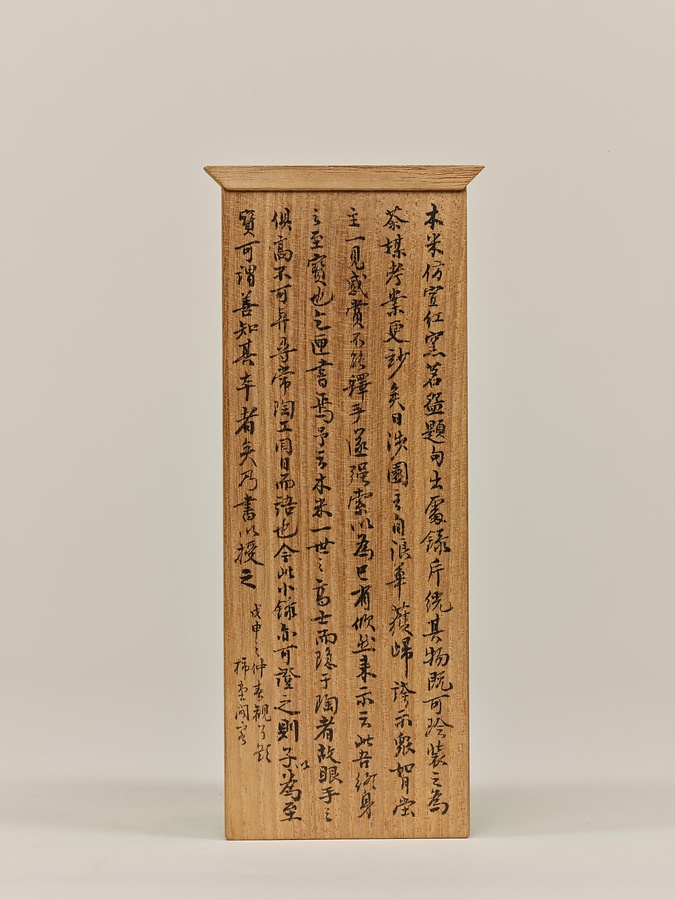 木米仿宣紅窯茗盌題句出處錄斤統其物既可珍裝之為
茶媒考案更妙矣日涉園主自浪華獲歸誇示衆如智堂
主一見感賞不能釋手遂强索以為已有欣然来示云此吾終身
之至寶也乞匣書焉予云木米一世之高士而隱于陶者故眼手之
俱高不可與尋常陶工同日而語也今此小罐亦可證之則子以為至
寶可謂善知其本者矣乃書以授之
戊申之仲春觀了題
柿堂閑客